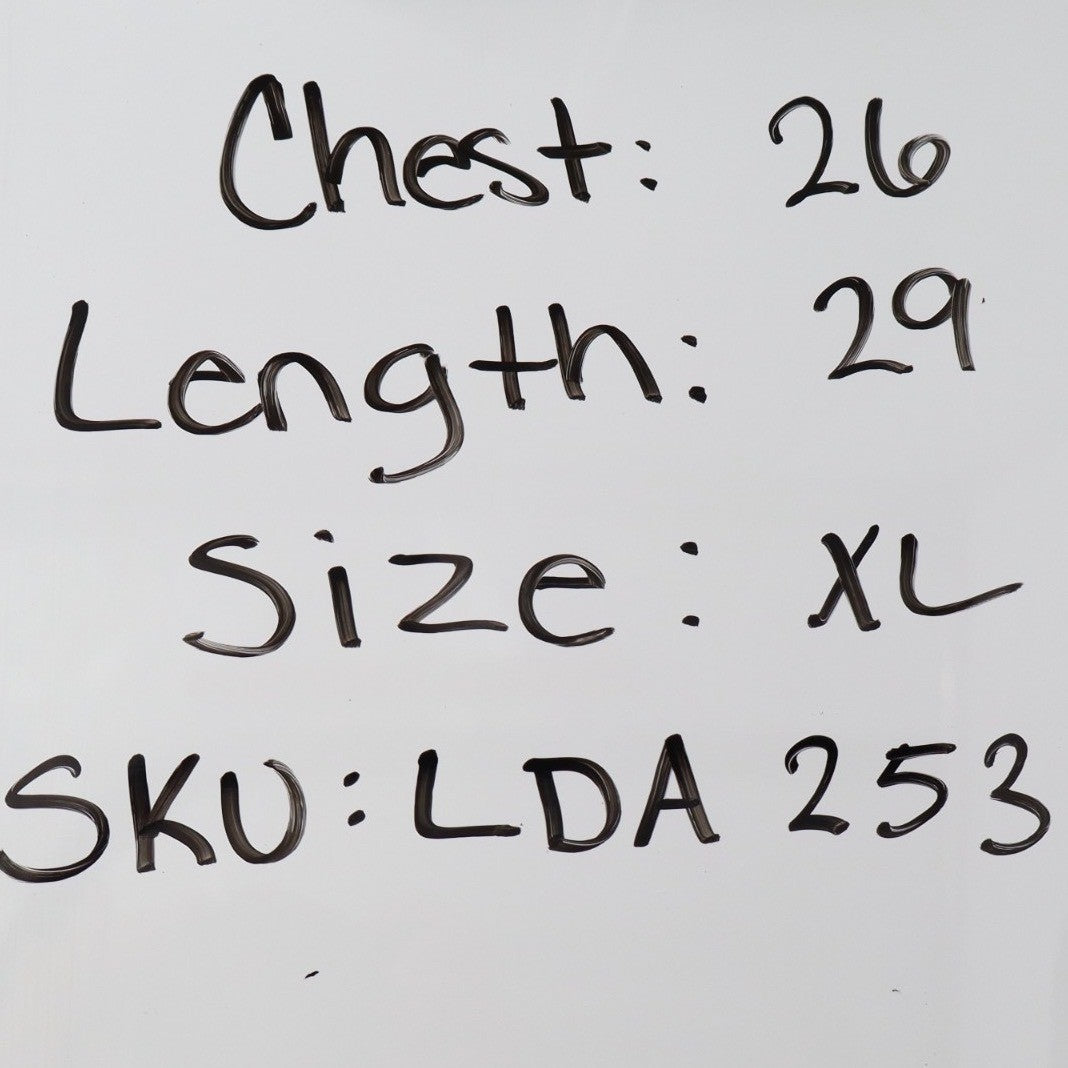 Chest: 26
Length: 29
Size: XL
SKU: LDA 253